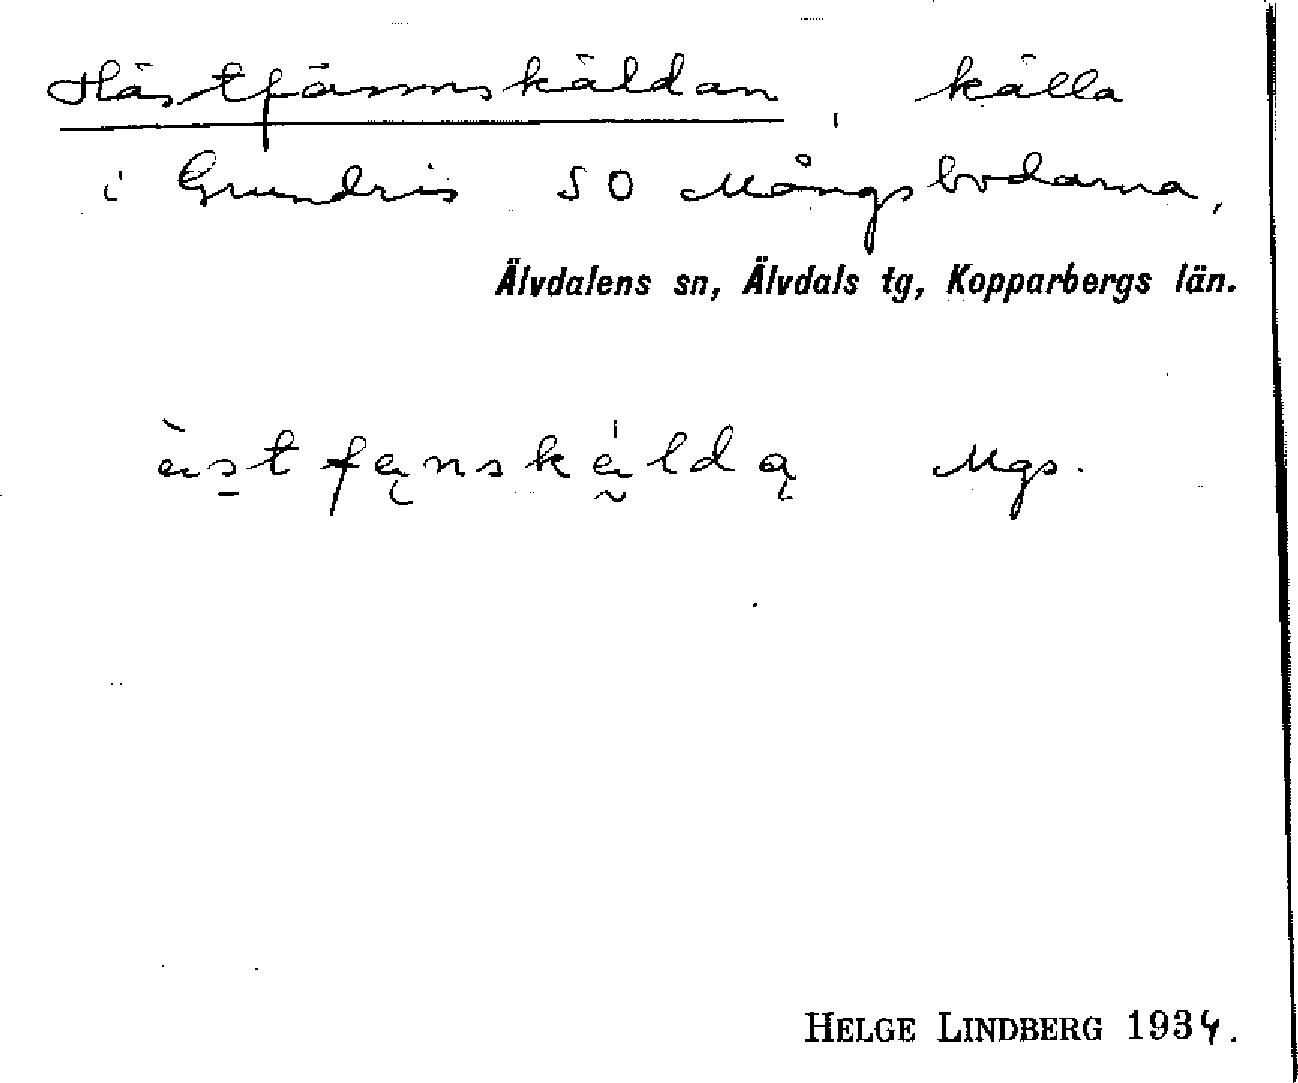 Hästfännskäldan, källa
i Grundris SO Mångsbodarna,
Älvdalens sn, Älvdals tg, Kopparbergs län.
Mgs.
HELGE LINDBERG 1934.